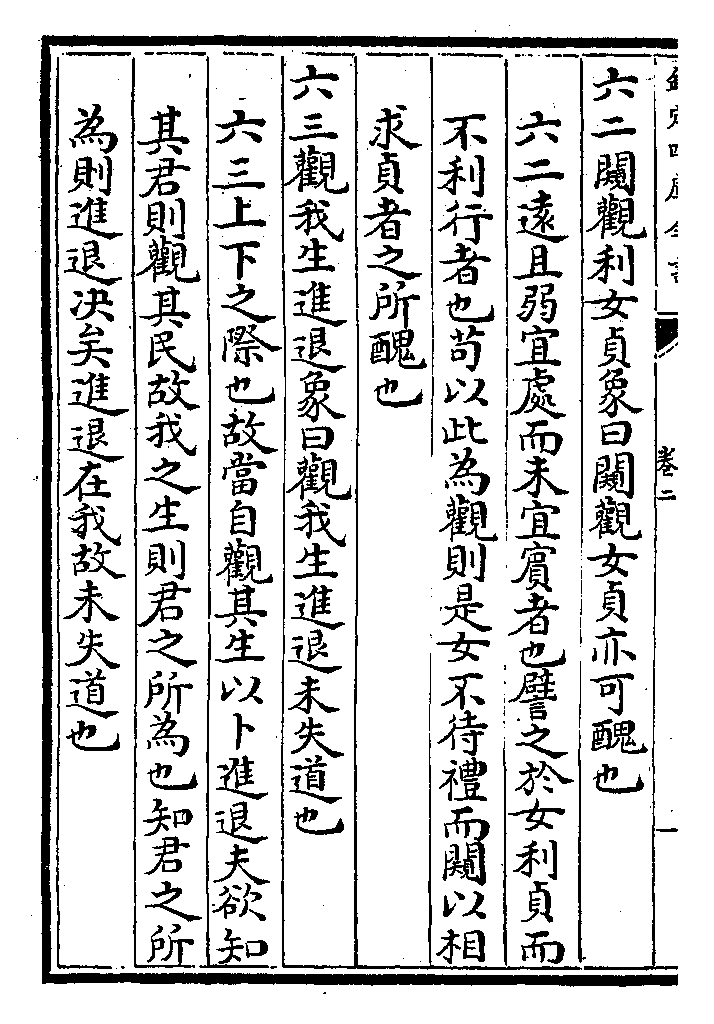 欽定四庫全書
卷二
一
六二闚觀利女貞象曰闚觀女貞亦可醜也
六二遠且弱宜處而未宜賓者也譬之於女利貞而
不利行者也苟以此為觀則是女不待禮而闚以相
求貞者之所醜也
六三觀我生進退象曰觀我生進退未失道也
六三上下之際也故當自觀其生以卜進退夫欲知
其君則觀其民故我之生則君之所為也知君之所
為則進退决矣進退在我故未失道也